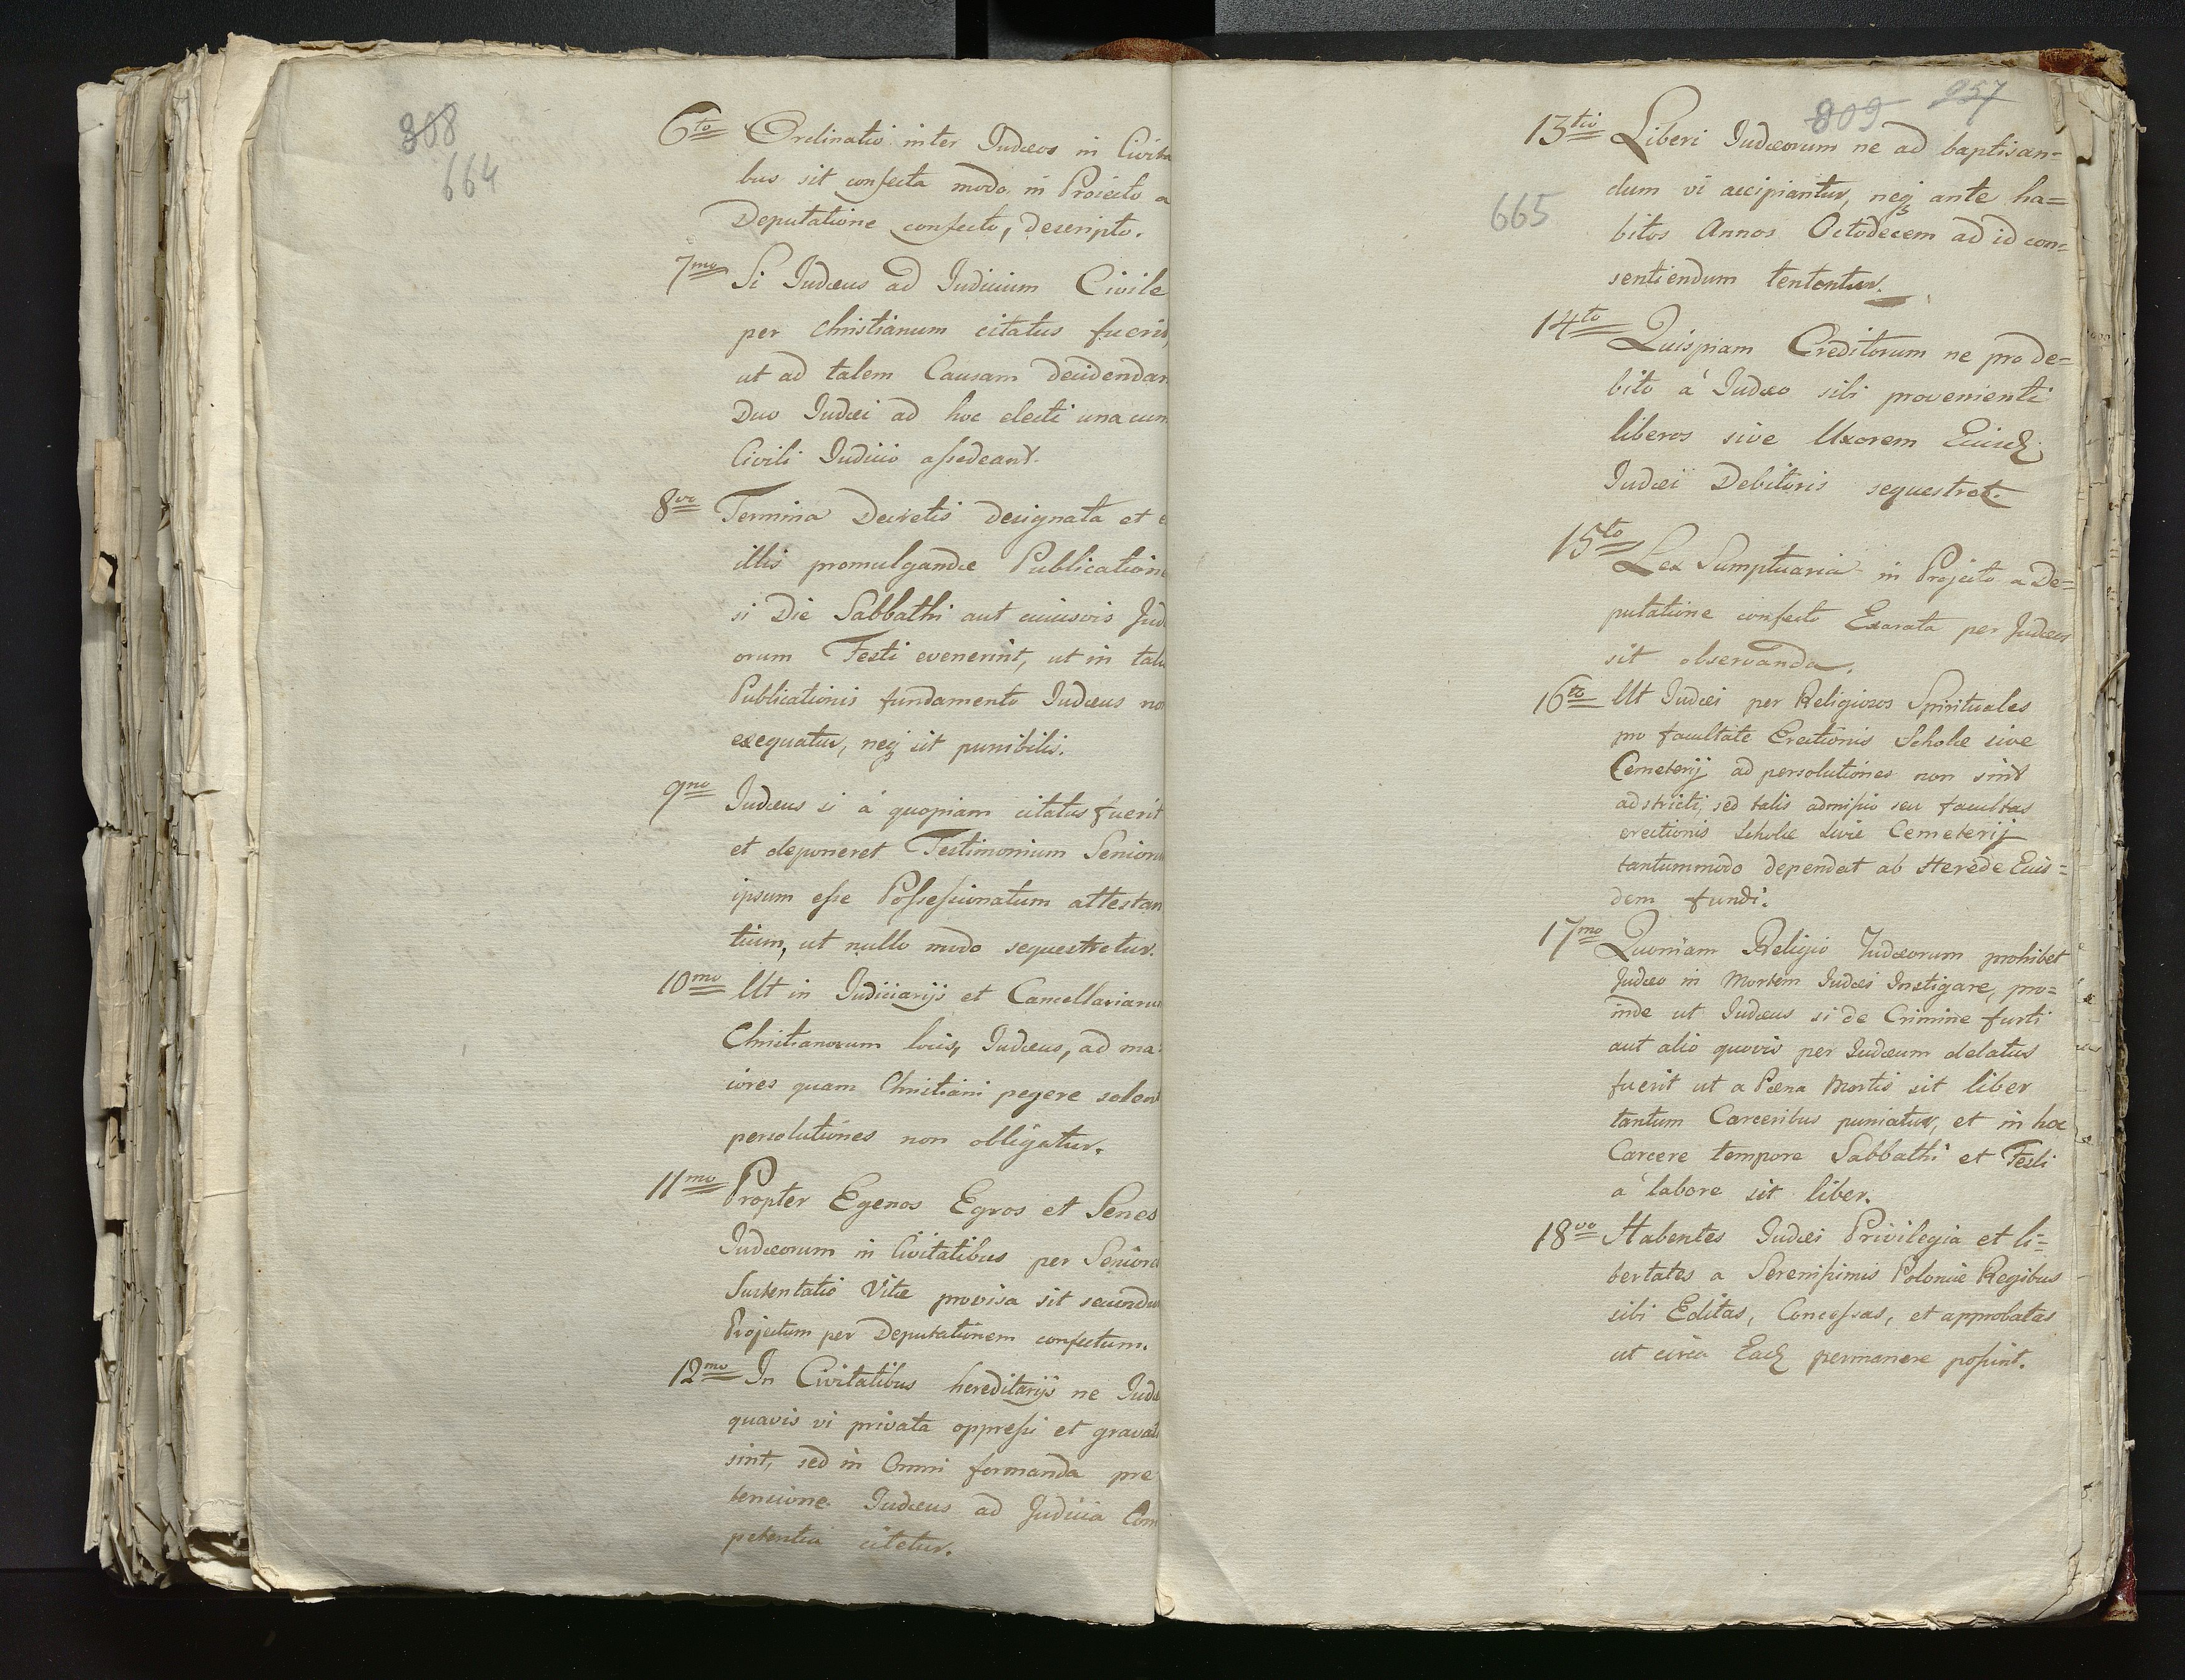 308
664
6to Ordinatio inter Judæos in Civita
bus sit confecta modo, in Proiecto a
Deputatione confecto, descripto.
7mo Si Judæus ad Judicium Civile
per Christianum citatus fuerit,
ut ad talem Causam decidendam
Duo Judæi ad hoc electi una cum
Civili Judicio assedeant.
8vo Termina Decretis designata et e
illis promulgandæ Publicatione
si Die Sabbathi aut cuiusvis Jud
orum Festi evenerint, ut in tali
Publicationis fundamento Judæus no
exequatur, neq3 sit punibilis.
9no Judæus si á quopiam citatus fuerit
et deponeret Testimonium Senioru
ipsum esse Possessionatum attestan
tium, ut nullo modo sequestretur.
10mo Ut in Judiciarijs et Cancellarianis
Christianorum locis, Judæus, ad ma
iores quam Christiani pegere solent
persolutiones non obligatur.
11mo Propter Egenos Egros et Senes
Judæorum in Civitatibus per Seniores
Sustentatio Vitæ provisa sit secundu
Projectum per Deputationem confectum.
12mo In Civitatibus hereditarijs ne Judæ
quavis vi privata oppressi et gravati
sint, sed in Omni formanda pre
tensione Judæus ad Judicia Com
petentia citetur.
809 957
665
13tio Liberi Judæorum ne ad baptisan=
dum vi accipiantur, neq3 ante ha=
bitos Annos Octodecem ad id con=
sentiendum tententur.
14to Quispiam Creditorum ne pro de=
bito á Judæo sibi provenienti
liberos sive Uxorem Eiusd:
Judæi Debitoris sequestret.
15to Lex Sumptuaria in Projecto a De=
putatione confecto Exarata per Judæos
sit observanda.
16to Ut Judæi per Religiosos Spirituales
pro facultate Erectionis Scholæ sive
Cemeterij ad persolutiones non sint
adstricti, sed talis admissio seu facultas
erectionis Scholæ sive Cemeterij
tantummodo dependet ab Herede Eius=
dem fundi.
17mo Quoniam Religio Judæorum prohibet
Judæo in Mortem Judæi Instigare, pro=
inde ut Judæus si de Crimine furti
aut alio quovis per Judæum delatus
fuerit ut a Pœna Mortis sit liber
tantum Carceribus puniatur, et in hoc
Carcere tempore Sabbathi et Festi
á labore sit liber.
18vo Habentes Judæi Privilegia et li=
bertates a Serenissimis Poloniæ Regibus
sibi Editas, Concessas, et approbatas
ut circa Ead: permanere possint.